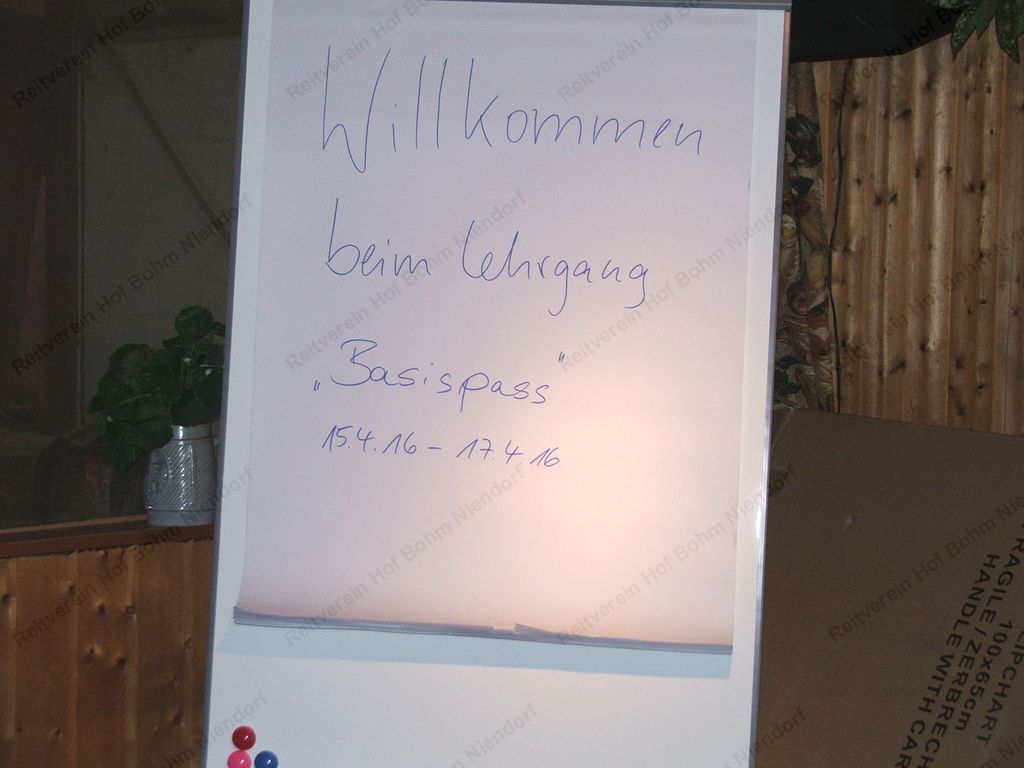 Willkommen
beim Lehrgang
„Basispass"
15.4.16 – 17.4.16
LIPCHART
100x65cm
RAGILE / ZERBRECH
HANDLE WITH CAR
Reitverein Hof Bohm Niendorf